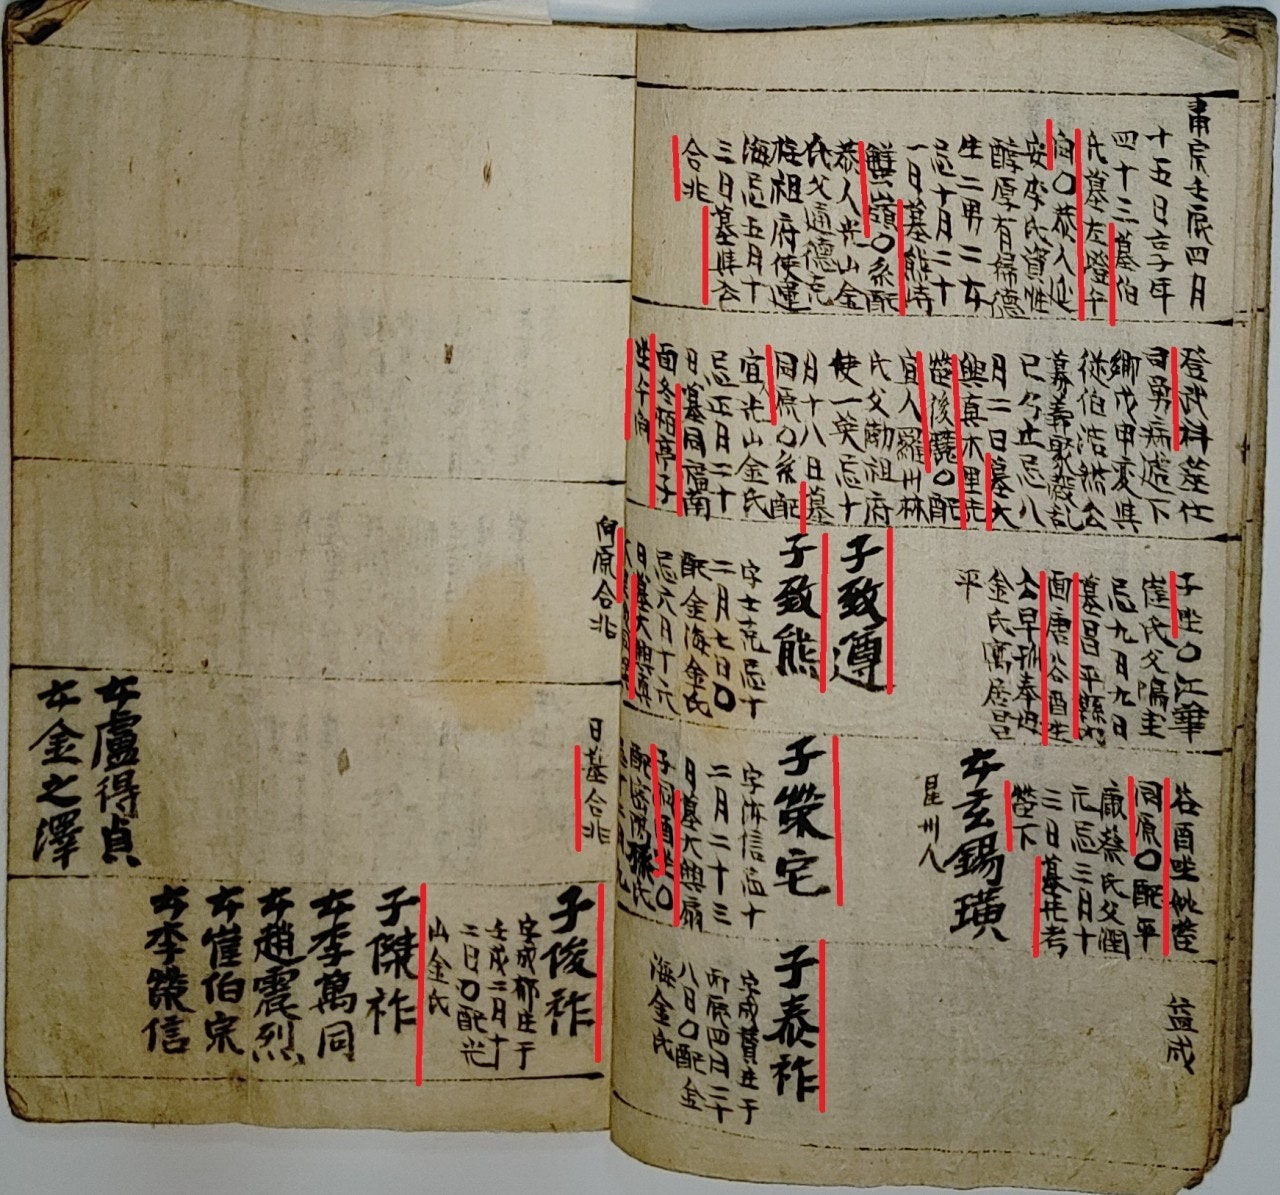 肅宗壬辰四月
十五日亡子年
四十三墓伯
氏墓左嶝午
向〇恭人延
安李氏資性
醇厚有婦德
生二男二女
忌十月二十
一日墓熊峙
蟹嶺〇系配
恭人光山金
氏父通德克
梅祖府使運
海忌五月十
三日墓
合兆
登武科筮仕
司勇病遞下
鄕戊申變與
從伯浩然公
募義聚發乱
已乃止忌八
月二日墓大
興眞木里先
塋後麓〇配
宜人羅州林
氏父勵祖府
使一英忌十
月十八日墓
同原〇系配
宜人光山金氏
忌正月二十
日墓同福南
面冬栢亭子
生午向
子坐〇江華
崔氏父鳴圭
忌九月九日
墓昌平縣內
面唐谷酉坐
公早孤奉母
金氏寓居昌
平
子致溥
子致熊
字士克忌十
二月七日〇
配金海金氏
忌六月十六
日墓大興眞
向原合兆
谷酉坐妣塋
同原〇配平
康蔡氏父潤
元忌三月十
三日墓在考
塋下
女玄錫璜
星州人
子榮宅
字汝信忌十
二月二十三
日墓大興扇
子洞酉坐〇
配密陽孫氏
日墓合兆
益成
子泰祚
字成賛生于
丙辰四月二十
八日〇配金
海金氏
子俊祚
字成郁生于
壬戌二月十
二日〇配光
山金氏
子傑祚
女李萬同
女趙震烈
女崔伯宗
女李榮信
女盧得貞
女金之澤